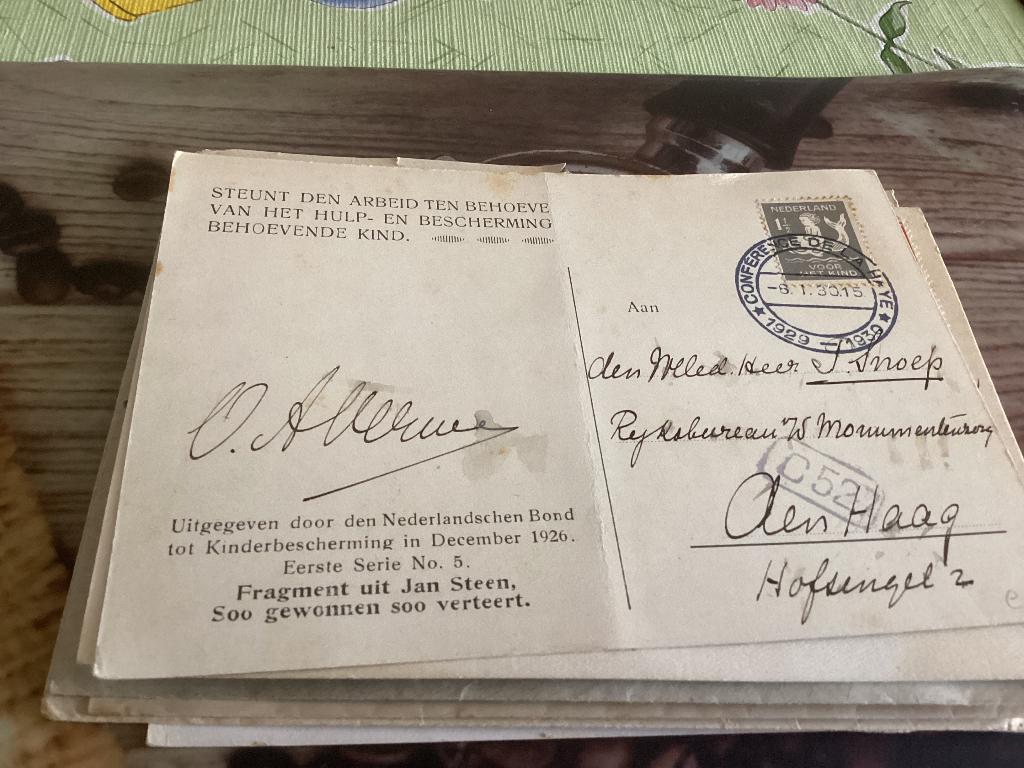 STEUNT DEN ARBEID TEN BEHOEVE
VAN HET HULP- EN BESCHERMING
BEHOEVENDE KIND.
NEDERLAND
1½
VOOR
HET KIND
CONFERENCE DE LA HAYE
-6.1.30.15
1929 - 1930
Aan
den Weled. Heer J. Snoep
Ryksbureau v/d Monumentenzorg
C 52
Den Haag
Hofsingel 2
Uitgegeven door den Nederlandschen Bond
tot Kinderbescherming in December 1926.
Eerste Serie No. 5.
Fragment uit Jan Steen,
Soo gewonnen soo verteert.